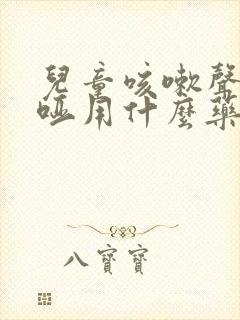 兒童咳嗽聲
啞用什麼藥
八寶寶